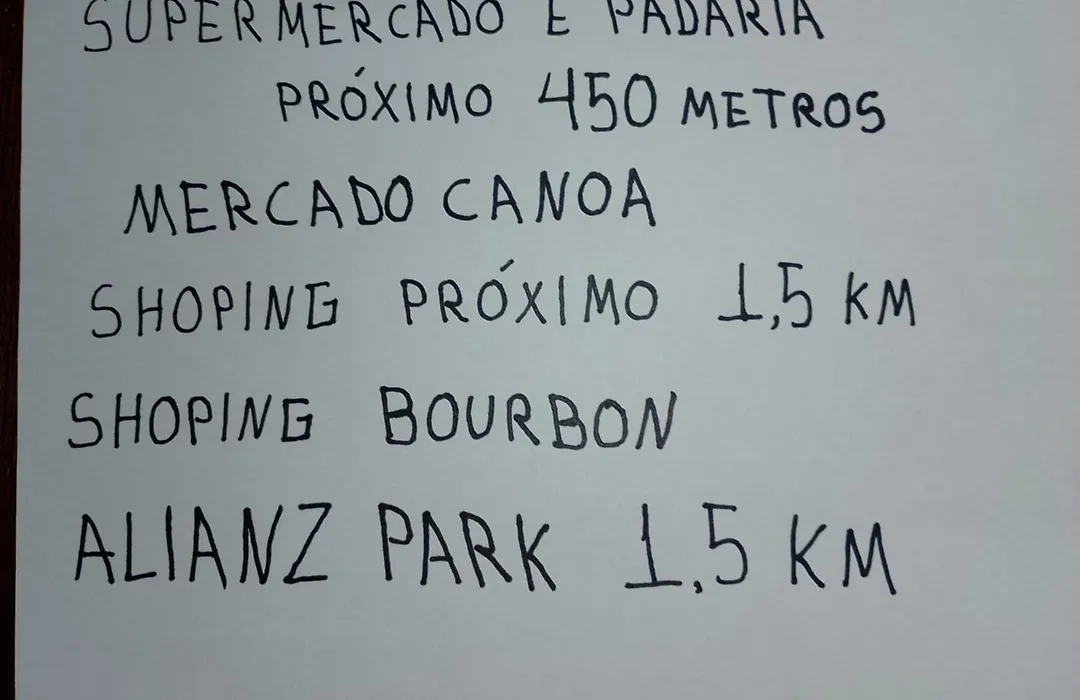 SUPERMERCADO E PADARIA
PRÓXIMO 450 METROS
MERCADO CANOA
SHOPING PRÓXIMO 1,5 KM
SHOPING BOURBON
ALIANZ PARK 1,5 KM